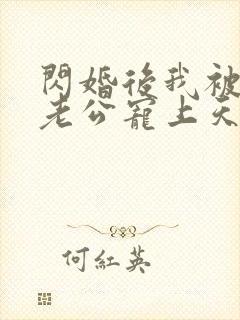 閃婚後我被
老公寵上天
何紅英